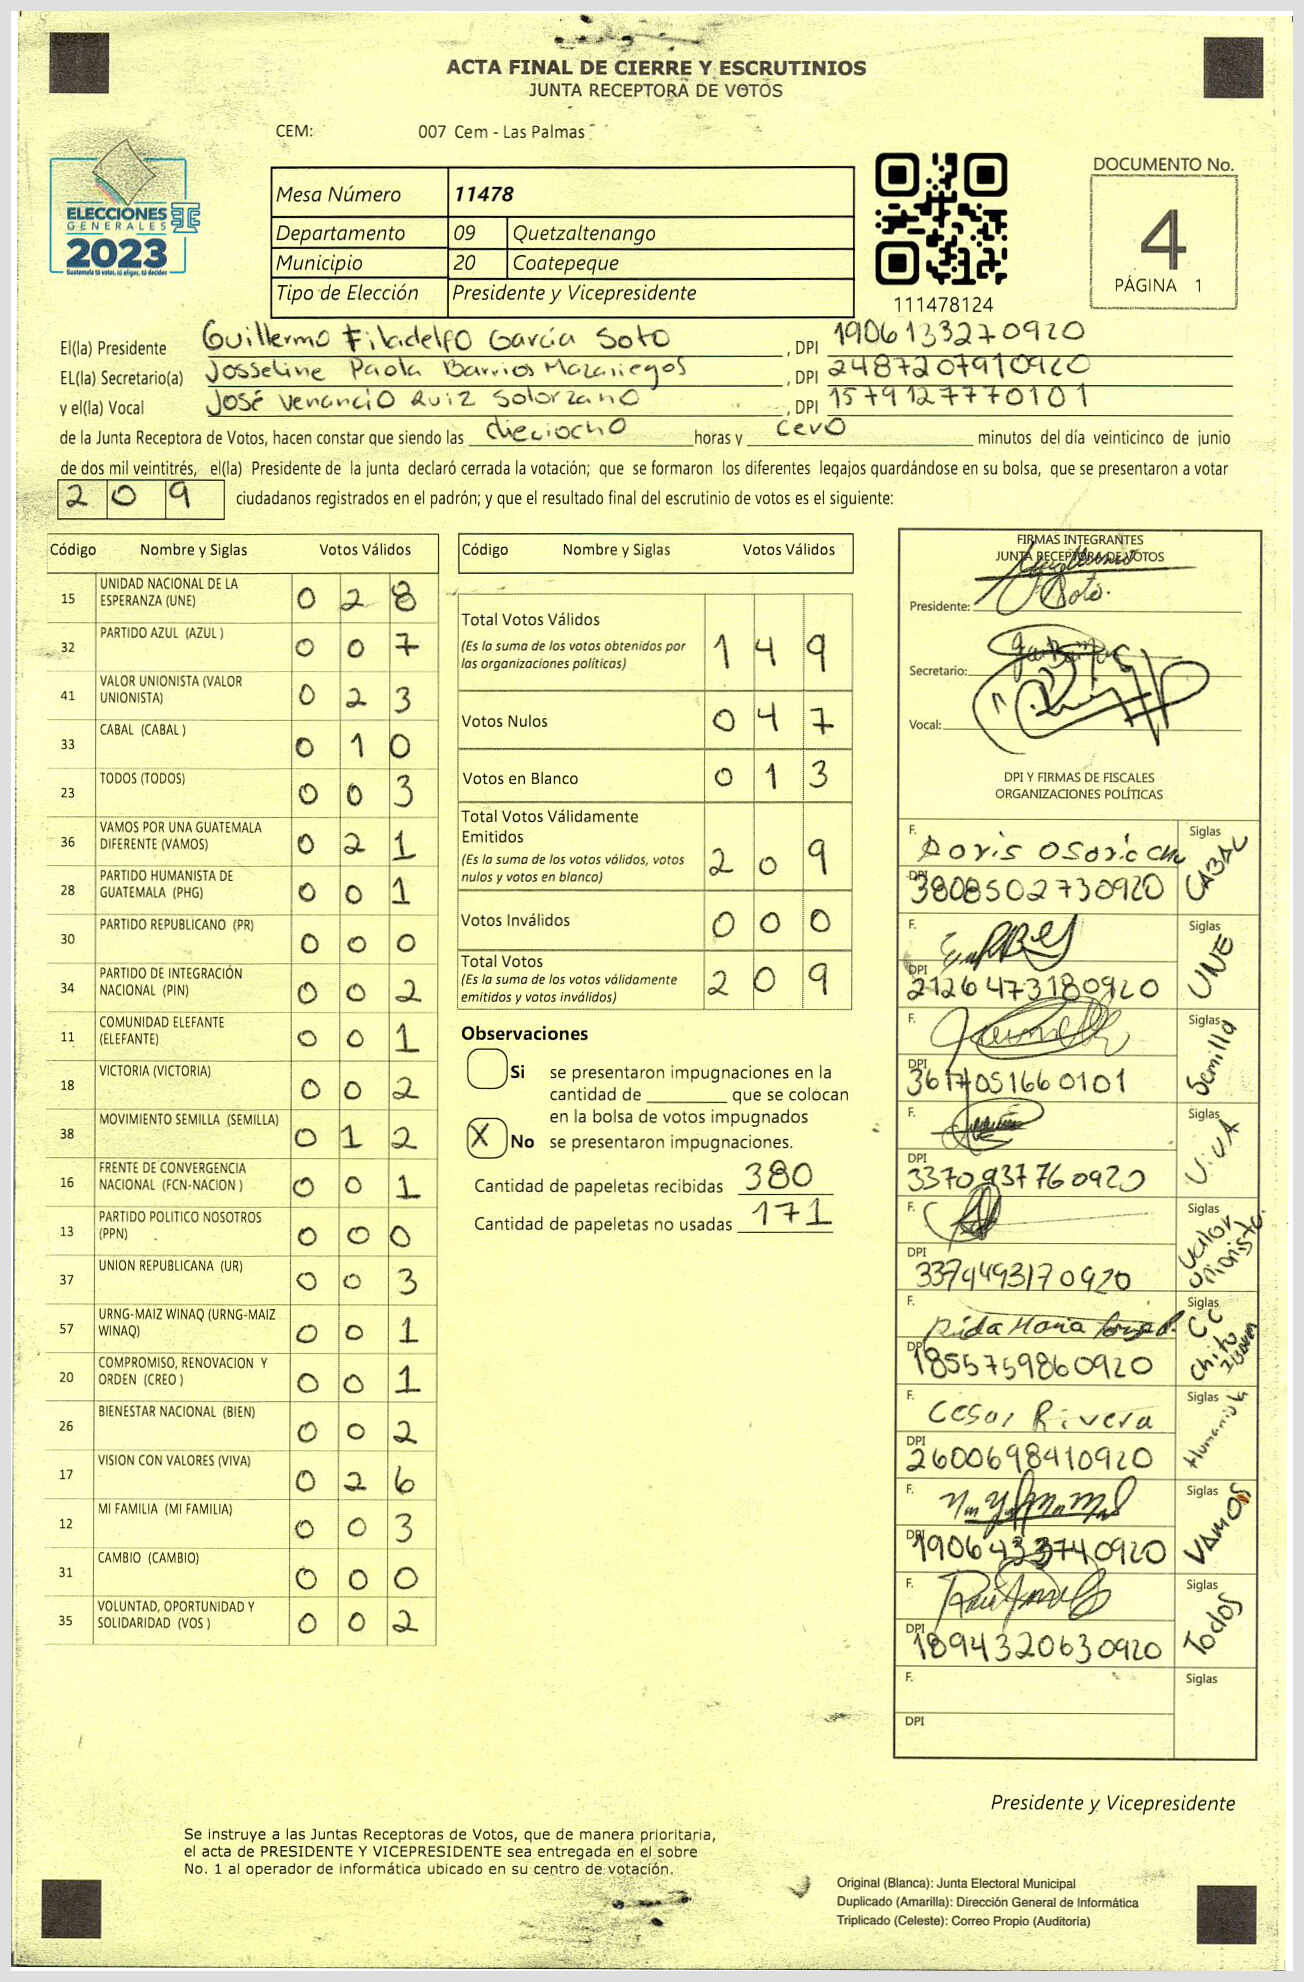 ACTA FINAL DE CIERRE Y ESCRUTINIOS
JUNTA RECEPTORA DE VOTOS
CEM: 007 Cem - Las Palmas
ELECCIONES
GENERALES
2023
Guatemala tú votas, tú eliges, tú decides
Mesa Número 11478
Departamento 09 Quetzaltenango
Municipio 20 Coatepeque
Tipo de Elección Presidente y Vicepresidente
111478124
DOCUMENTO No.
4
PÁGINA 1
El(la) Presidente Guillermo Filadelfo García Soto, DPI 1906133270920
EL(la) Secretario(a) Josseline Paola Barrios Mazariegos, DPI 2487207910920
y el(la) Vocal José Venancio Ruiz Solorzano, DPI 1579127770101
de la Junta Receptora de Votos, hacen constar que siendo las dieciocho horas y cero minutos del día veinticinco de junio
de dos mil veintitrés, el(la) Presidente de la junta declaró cerrada la votación; que se formaron los diferentes legajos quardándose en su bolsa, que se presentaron a votar
209 ciudadanos registrados en el padrón; y que el resultado final del escrutinio de votos es el siguiente:
Código Nombre y Siglas Votos Válidos
15 UNIDAD NACIONAL DE LA ESPERANZA (UNE) 028
32 PARTIDO AZUL (AZUL ) 007
41 VALOR UNIONISTA (VALOR UNIONISTA) 023
33 CABAL (CABAL ) 010
23 TODOS (TODOS) 003
36 VAMOS POR UNA GUATEMALA DIFERENTE (VAMOS) 021
28 PARTIDO HUMANISTA DE GUATEMALA (PHG) 001
30 PARTIDO REPUBLICANO (PR) 000
34 PARTIDO DE INTEGRACIÓN NACIONAL (PIN) 002
11 COMUNIDAD ELEFANTE (ELEFANTE) 001
18 VICTORIA (VICTORIA) 002
38 MOVIMIENTO SEMILLA (SEMILLA) 012
16 FRENTE DE CONVERGENCIA NACIONAL (FCN-NACION ) 001
13 PARTIDO POLITICO NOSOTROS (PPN) 000
37 UNION REPUBLICANA (UR) 003
57 URNG-MAIZ WINAQ (URNG-MAIZ WINAQ) 001
20 COMPROMISO, RENOVACION Y ORDEN (CREO ) 001
26 BIENESTAR NACIONAL (BIEN) 002
17 VISION CON VALORES (VIVA) 026
12 MI FAMILIA (MI FAMILIA) 003
31 CAMBIO (CAMBIO) 000
35 VOLUNTAD, OPORTUNIDAD Y SOLIDARIDAD (VOS ) 002
Código Nombre y Siglas Votos Válidos
Total Votos Válidos 149
(Es la suma de los votos obtenidos por
las organizaciones políticas)
Votos Nulos 047
Votos en Blanco 013
Total Votos Válidamente
Emitidos 209
(Es la suma de los votos válidos, votos
nulos y votos en blanco)
Votos Inválidos 000
Total Votos 209
(Es la suma de los votos válidamente
emitidos y votos inválidos)
Observaciones
Si se presentaron impugnaciones en la
cantidad de ________ que se colocan
en la bolsa de votos impugnados
X No se presentaron impugnaciones.
Cantidad de papeletas recibidas 380
Cantidad de papeletas no usadas 171
FIRMAS INTEGRANTES
JUNTA RECEPTORA DE VOTOS
Presidente: Soto.
Secretario:
Vocal:
DPI Y FIRMAS DE FISCALES
ORGANIZACIONES POLÍTICAS
F. Doris Osorio Siglas CABAL
DPI 3808502730920
F. Siglas UNE
DPI 2126473180920
F. Siglas Semilla
DPI 3617051660101
F. Siglas ViVA
DPI 3370937760920
F. Siglas Valor Unionista.
DPI 3379493170920
F. Siglas CC
DPI 1855759860920
F. Cesar Rivera Siglas Humanista
DPI 2600698410920
F. Siglas VAMOS
DPI 1906433740920
F. Siglas Todos
DPI 1894320630920
F. Siglas
DPI
Presidente y Vicepresidente
Se instruye a las Juntas Receptoras de Votos, que de manera prioritaria,
el acta de PRESIDENTE Y VICEPRESIDENTE sea entregada en el sobre
No. 1 al operador de informática ubicado en su centro de votación.
Original (Blanca): Junta Electoral Municipal
Duplicado (Amarilla): Dirección General de Informática
Triplicado (Celeste): Correo Propio (Auditoría)